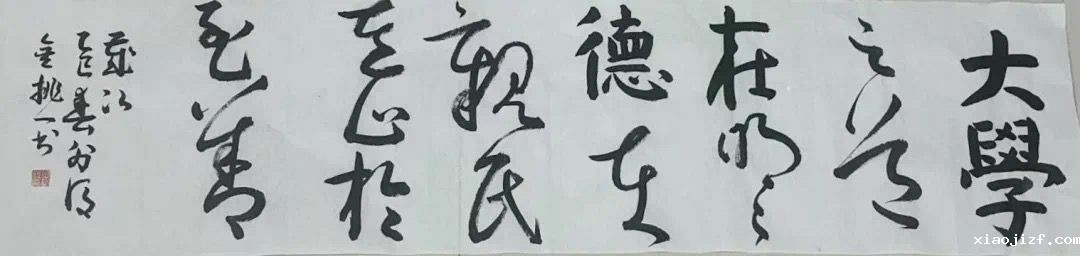 大學
之道
在明々
德在
親民
在止於
至善
歲次
乙巳春
xiaojizf.com